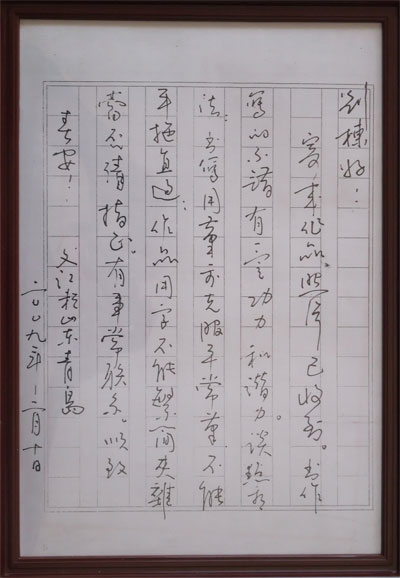 刘栋好！
寄来作品、照片已收到。书作
写的不错有一定功力和潜力。谈点看
法：书写用笔要克服平常笔不能
平拖直过；作品用字不能繁简夹雜
當否请指正。有事常联系。顺致
春安！文江于山东青岛
二〇〇九年二月十日